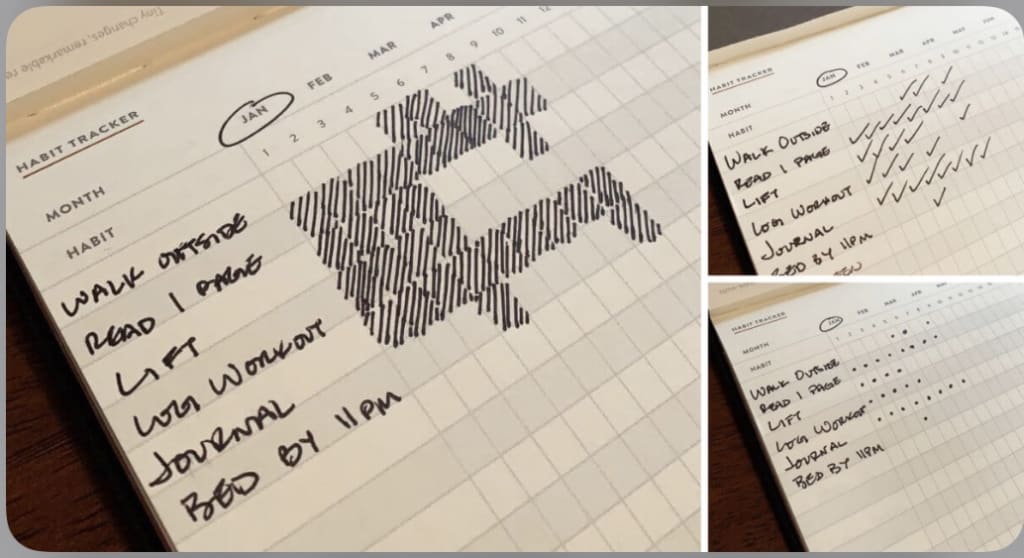 Tiny changes, remarkable re
HABIT TRACKER
MONTH JAN FEB MAR APR
HABIT 1 2 3 4 5 6 7 8 9 10 11 12
WALK OUTSIDE
READ 1 PAGE
LIFT
LOG WORKOUT
JOURNAL
BED BY 11PM
HABIT TRACKER
MONTH JAN FEB MAR APR MAY JUN
HABIT
WALK OUTSIDE
READ 1 PAGE
LIFT
LOG WORKOUT
JOURNAL
BED BY 11PM
HABIT TRACKER
MONTH JAN FEB MAR APR MAY
HABIT
WALK OUTSIDE
READ 1 PAGE
LIFT
LOG WORKOUT
JOURNAL
BED BY 11PM